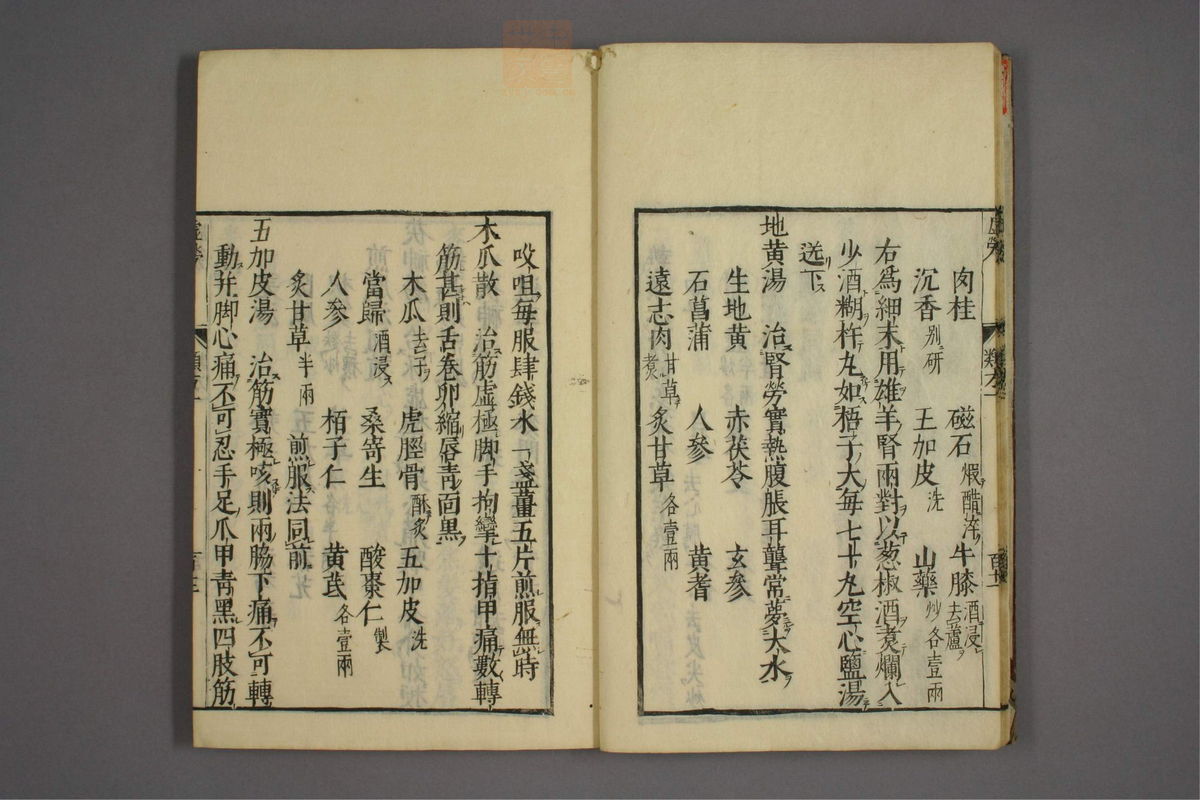 肉桂　磁石煆醋淬　牛膝酒浸去蘆
沉香别研　王加皮洗　山藥炒各壹兩
右爲細末用雄羊腎兩對以葱椒酒煑爛入
少酒糊杵丸如梧子大每七十丸空心鹽湯
送下
地黃湯　治腎勞實熱腹脹耳聾常夢大水
生地黃　赤茯苓　玄參
石菖蒲　人參　黃耆
遠志肉甘草煑　炙甘草各壹兩
㕮咀每服肆錢水一盞薑五片煎服無時
木瓜散　治筋虛極脚手拘攣十指甲痛數轉
筋甚則舌卷卵縮唇靑面黑
木瓜去子　虎脛骨酥炙　五加皮洗
當歸酒浸　桑寄生　酸棗仁製
人參　栢子仁　黃芪各壹兩
炙甘草半兩　煎服法同前
五加皮湯　治筋實極咳則兩脇下痛不可轉
動幷脚心痛不可忍手足爪甲靑黑四肢筋